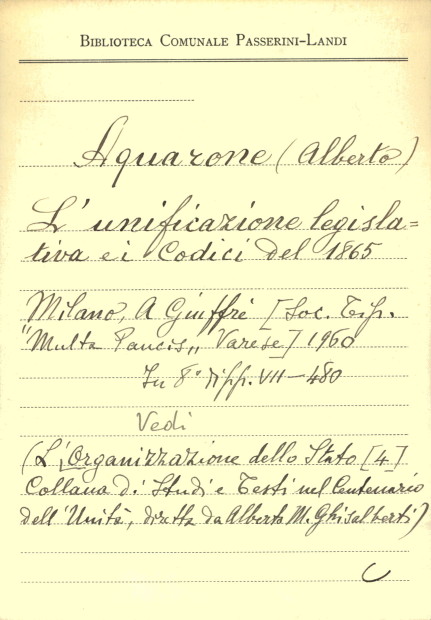 BIBLIOTECA COMUNALE PASSERINI-LANDI
Aquarone (Alberto)
L'unificazione legisla=
tiva e i Codici del 1865
Milano, A Giuffrè [Soc. Tip.
"Multa Paucis„ Varese] 1960
In 8° di pp. VII-480
Vedi
(L'Organizzazione dello Stato [4]
Collana di Studi e Testi nel Centenario
dell'Unità, diretta da Alberto M. Ghisalberti)
C